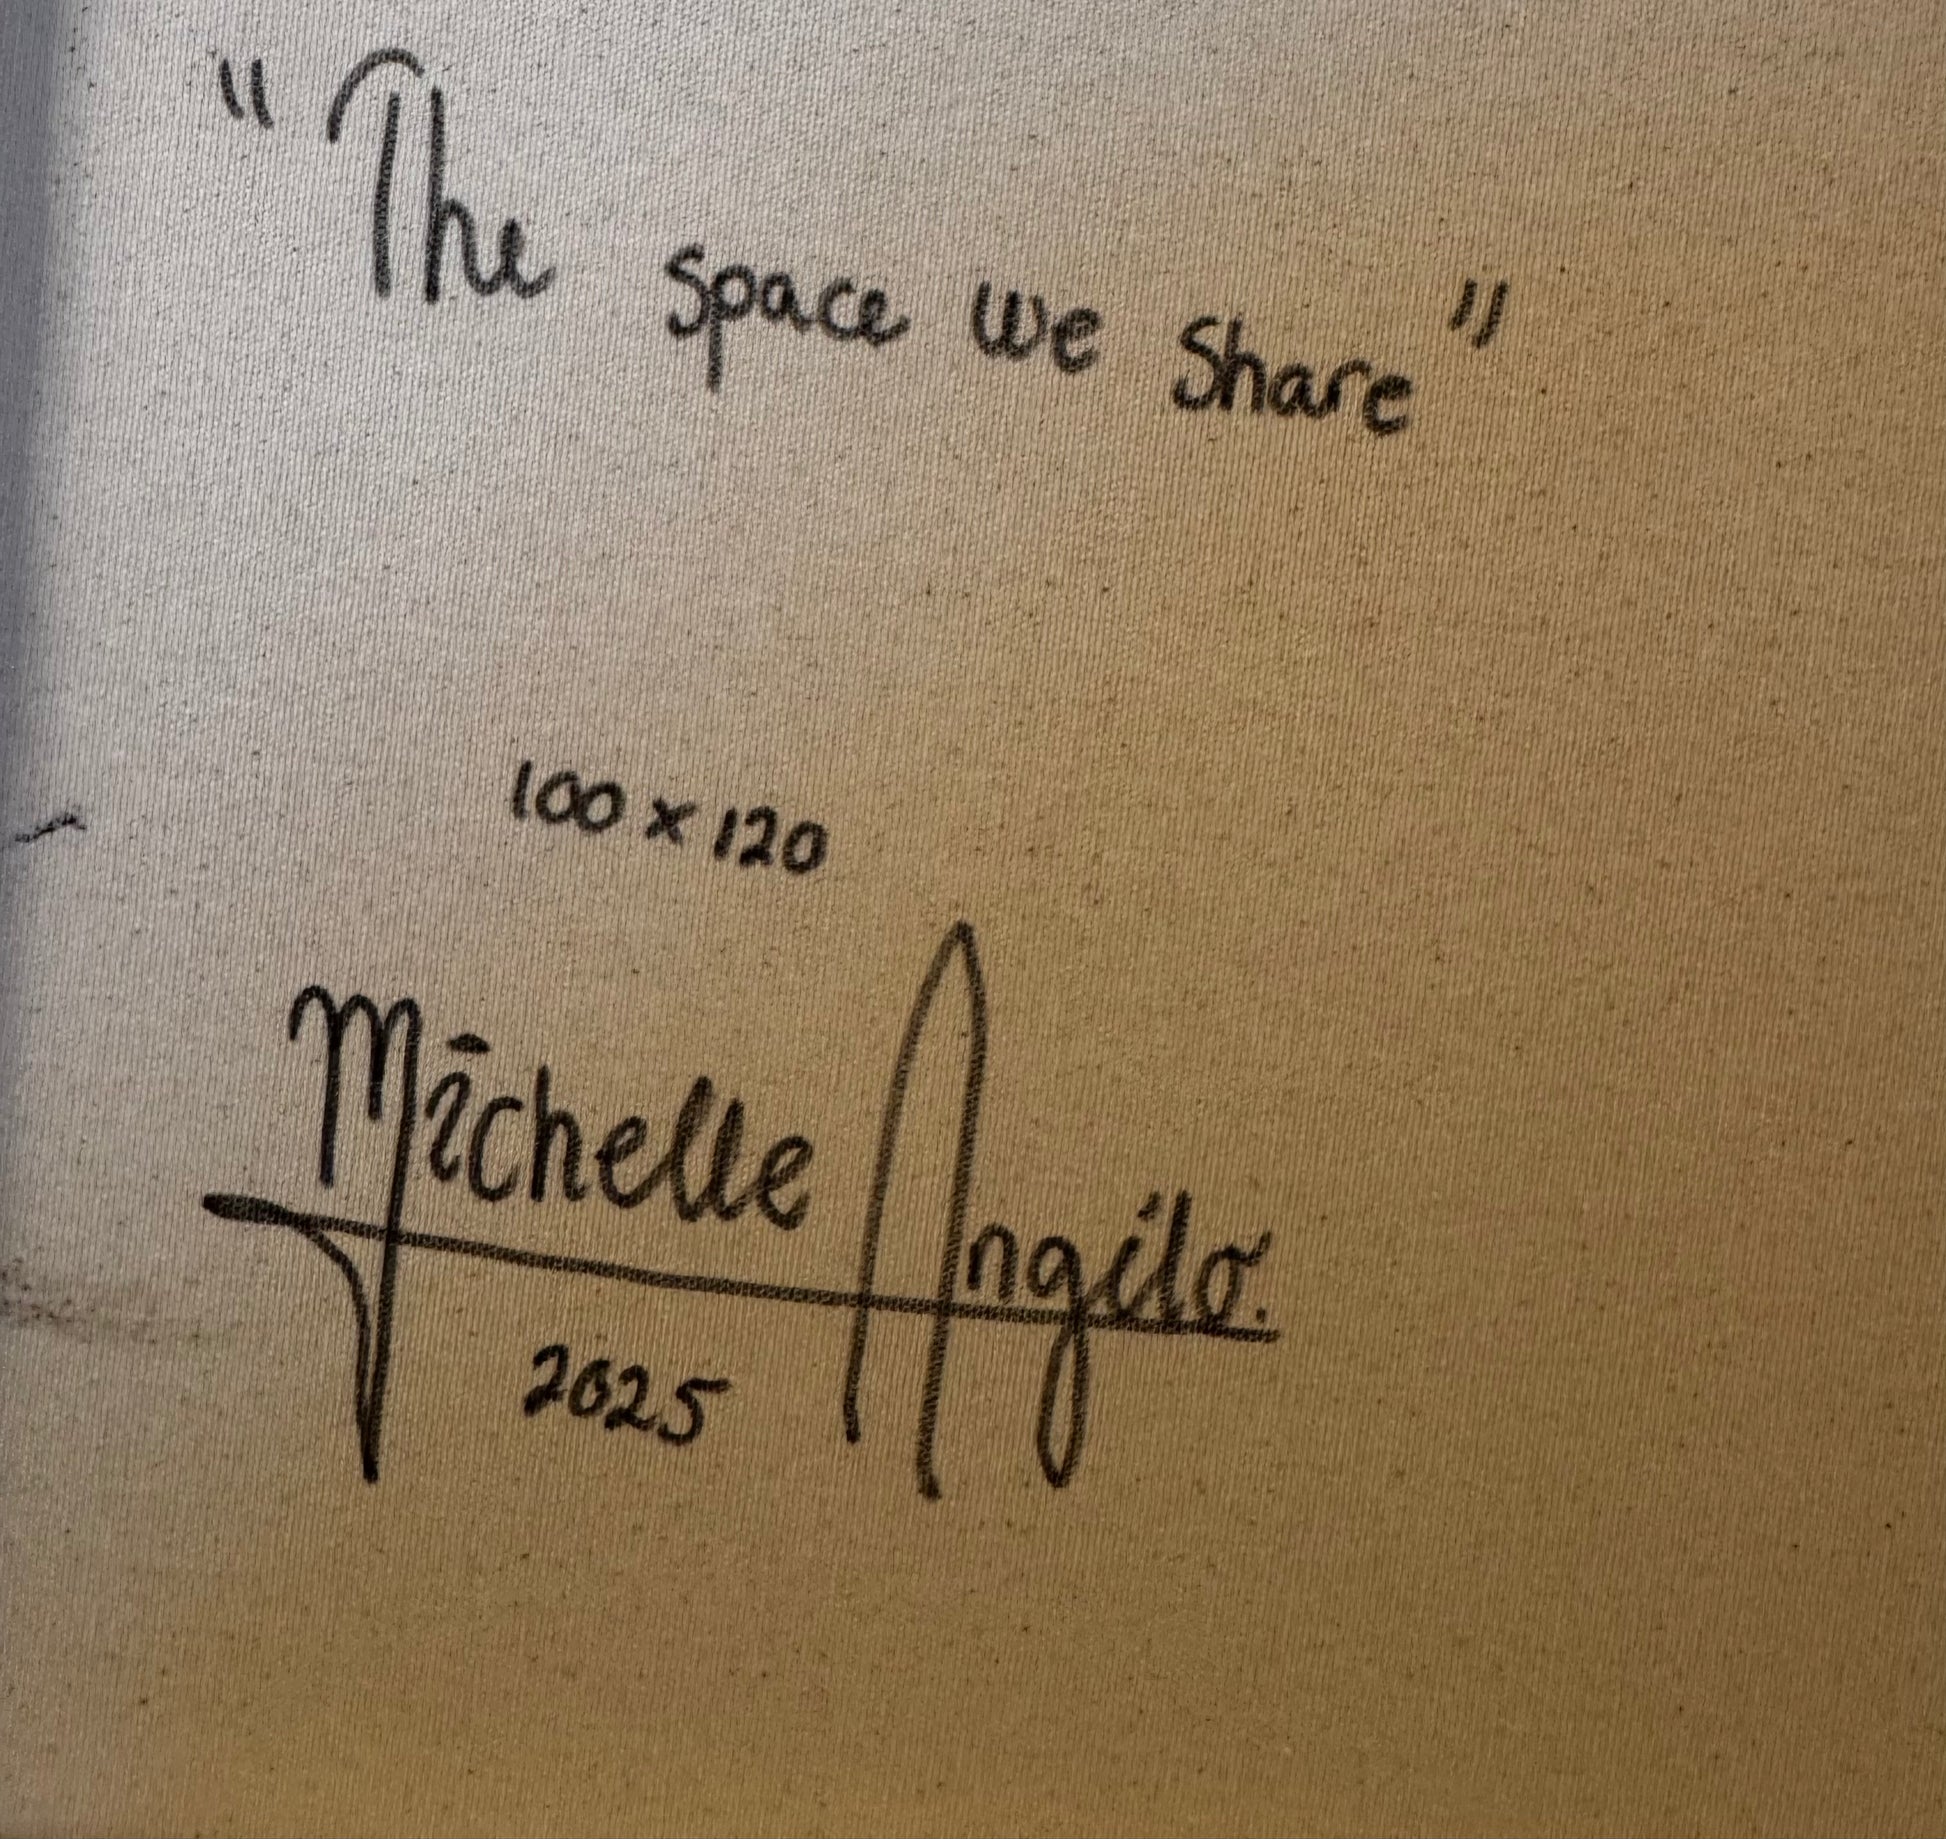 "The space we share"
100 x 120
Michelle Angilo.
2025